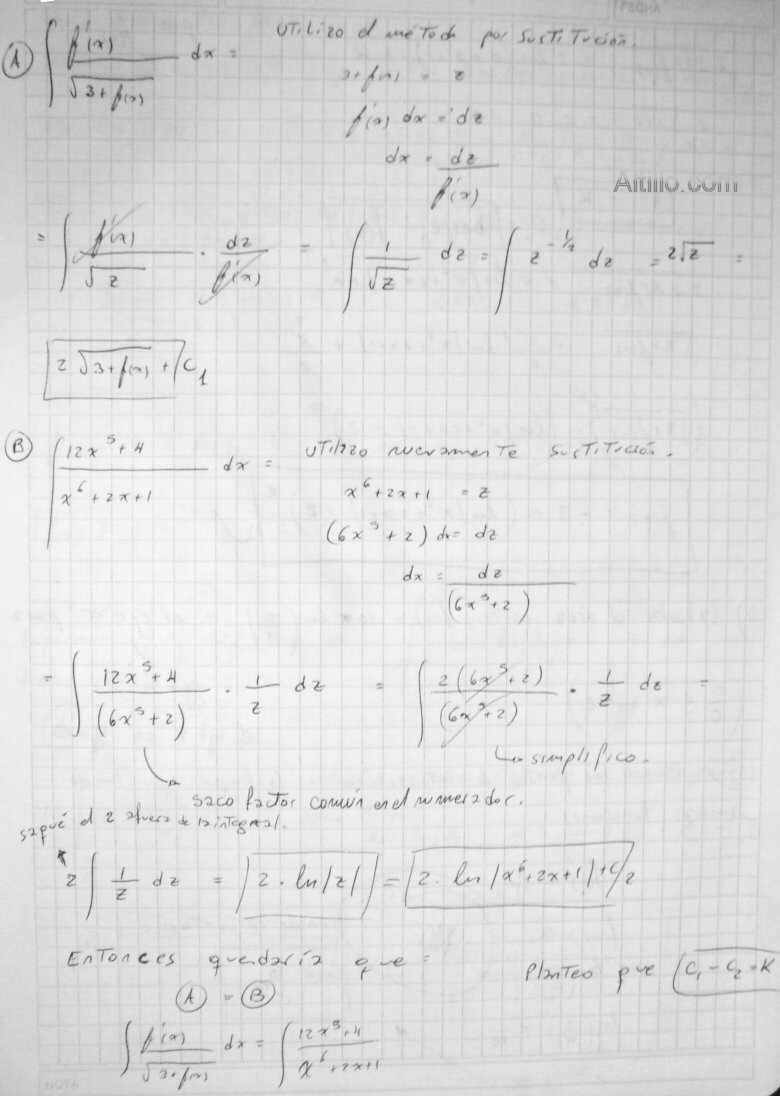 A ∫ f'(x) / √(3+f(x)) dx = Utilizo el método por sustitución.
3+f(x) = z
f'(x) dx = dz
dx = dz / f'(x)
Altillo.com
= ∫ f'(x) / √z · dz / f'(x) = ∫ 1/√z dz = ∫ z^(-1/2) dz = 2√z =
2 √(3+f(x)) + C₁
B ∫ (12x⁵+4) / (x⁶+2x+1) dx = Utilizo nuevamente sustitución.
x⁶+2x+1 = z
(6x⁵+2) dx = dz
dx = dz / (6x⁵+2)
= ∫ (12x⁵+4) / (6x⁵+2) · 1/z dz = ∫ 2(6x⁵+2) / (6x⁵+2) · 1/z dz =
simplifico.
saco factor común en el numerador.
saqué el 2 afuera de la integral.
2 ∫ 1/z dz = 2 · ln|z| = 2 · ln|x⁶+2x+1| + C₂
Entonces quedaría que = Planteo que C₁ - C₂ = K
A = B
∫ f'(x) / √(3+f(x)) dx = ∫ (12x⁵+4) / (x⁶+2x+1)